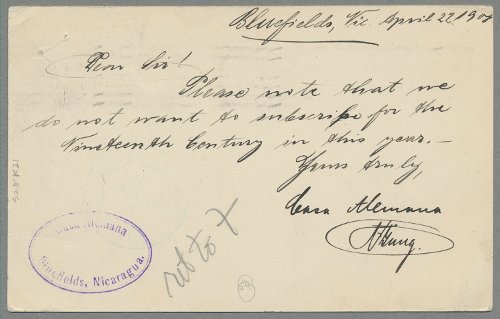 Bluefields, Nic. April 22. 190
Dear Sir!
Please note that we
do not want to subscribe for the
Nineteenth Century in this year.—
Yours truly,
Casa Alemana
Casa Alemana
Bluefields, Nicaragua.
ret to 7